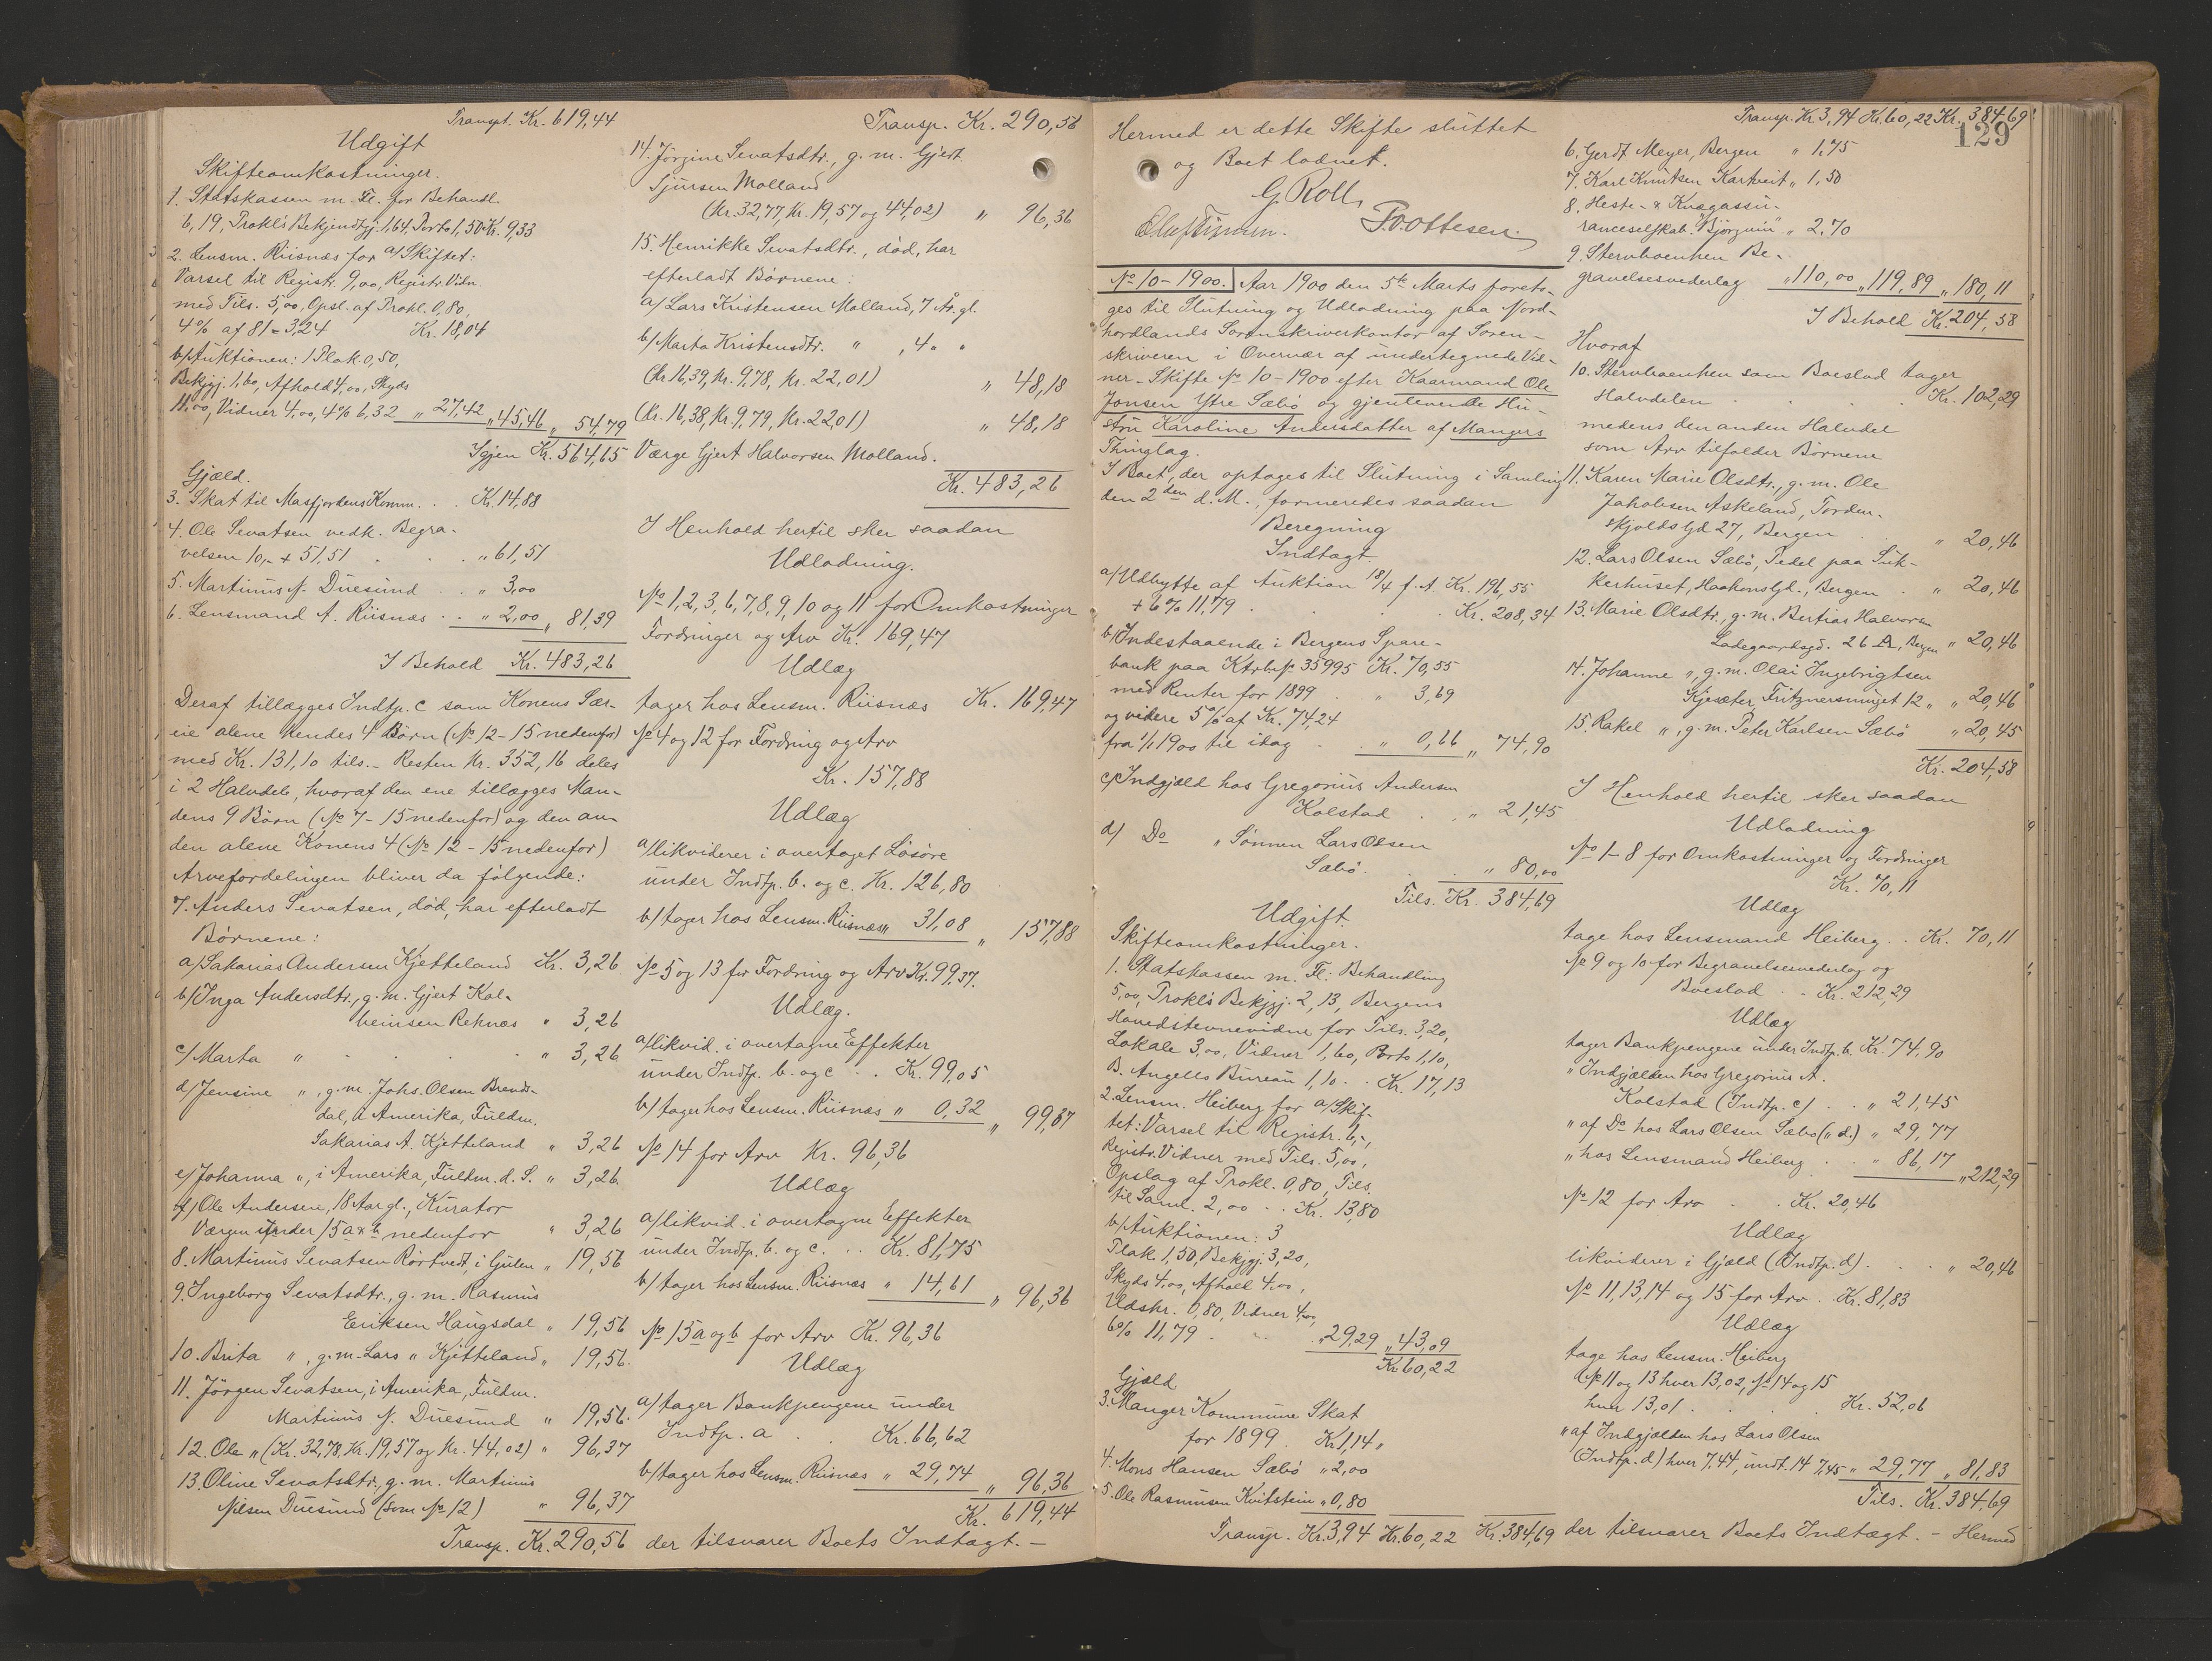 Transpt. Kr. 619,44
Udgift
Skifteomkostninger.
1. Statskassen m. Fl. for Behandl.
6,19, Prokl's Bekjendtgj. 1,64, Porto 1,50 Kr. 9,33
2. Lensm. Riisnæs for a/ Skiftet:
Varsel til Registr. 9,00, Registr. Vidn.
med Tils. 5,00, Opsl. af Prokl. 0,80,
4% af 81 = 3,24 Kr. 18,04
b/ Auktionen: 1 Plak. 0,50,
Bekjgj. 1,60, Afhold 4,00, Skyds
11,00, Vidner 4,00, 4% 6,32 „ 27,42 „ 45,46 „ 54,79
Igjen Kr. 564,65
Gjæld.
3. Skat til Masfjordens Komm. . . Kr. 14,88
4. Ole Sevatsen vedk. Begra-
velsen 10,- + 51,51 . . . „ 61,51
5. Martinus N. Duesund . . „ 3,00
6. Lensmand A. Riisnæs . . „ 2,00 „ 81,39
I Behold Kr. 483,26
Deraf tillægges Indtp. c som Konens Sær-
eie alene hendes 4 Børn (No 12-15 nedenfor)
med Kr. 131,10 tils. - Resten Kr. 352,16 deles
i 2 Halvdele, hvoraf den ene tillægges Man-
dens 9 Børn (No 7-15 nedenfor) og den an-
den alene Konens 4 (No 12-15 nedenfor)
Arvefordelingen bliver da følgende:
7. Anders Sevatsen, død, har efterladt
Børnene:
a/ Sakarias Andersen Kjetteland Kr. 3,26
b/ Inga Andersdtr., g. m. Gjert Kol-
beinsen Reknæs „ 3,26
c/ Marta „ . . . . „ 3,26
d/ Jensine „ , g. m. Johs. Olsen Brends-
dal, i Amerika, Fuldm.
Sakarias A. Kjetteland „ 3,26
e/ Johanna „, i Amerika, Fuldm. d. S. „ 3,26
f/ Ole Andersen, 18 Aar gl., Kurator
Værgen under 15 a & b nedenfor „ 3,26
8. Martinus Sevatsen Rørtvedt, i Gulen „ 19,56
9. Ingeborg Sevatsdtr., g. m. Rasmus
Eriksen Haugsdal „ 19,56
10. Brita „ , g. m. Lars „ Kjetteland „ 19,56.
11. Jørgen Sevatsen, i Amerika, Fuldm.
Martinus N. Duesund „ 19,56.
12. Ole „ (Kr. 32,78, Kr. 19,57 og Kr. 44,02) „ 96,37
13. Oline Sevatsdtr., g. m. Martinus
Nilsen Duesund (som No 12) „ 96,37
Transp. Kr. 290,56
Transp. Kr. 290,56
14. Jørgine Sevatsdtr., g. m. Gjert
Sjursen Molland
(Kr. 32,77, Kr. 19,57 og 44,02) „ 96,36
15. Henrikke Sevatsdtr., død, har
efterladt Børnene:
a/ Lars Kristensen Molland, 7 År. gl.
b/ Marta Kristensdtr. „ , 4 „ „
(Kr. 16,39, Kr. 9,78, Kr. 22,01) „ 48,18
(Kr. 16,38, Kr. 9,79, Kr. 22,01) „ 48,18
Værge Gjert Halvorsen Molland.
Kr. 483,26
I Henhold hertil sker saadan
Udlodning.
No 1, 2, 3, 6, 7, 8, 9, 10 og 11 for Omkostninger
Fordringer og Arv Kr. 169,47
Udlæg
tager hos Lensm. Riisnæs Kr. 169,47
No 4 og 12 for Fordring og Arv
Kr. 157,88
Udlæg
a/ likviderer i overtaget Løsøre
under Indtp. b. og c. Kr. 126,80
b/ tager hos Lensm. Riisnæs „ 31,08 „ 157,88
No 5 og 13 for Fordring og Arv Kr. 99,37.
Udlæg.
a/ likvid. i overtagne Effekter
under Indtp. b. og c . . Kr. 99,05
b/ tager hos Lensm. Riisnæs „ 0,32 „ 99,37
No 14 for Arv Kr. 96,36
Udlæg
a/ likvid. i overtagne Effekter
under Indtp. b. og c. . . Kr. 81,75
b/ tager hos Lensm. Riisnæs „ 14,61 „ 96,36
No 15 a og b for Arv Kr. 96,36
Udlæg
a/ tager Bankpengene under
Indtp. a . . Kr. 66,62
b/ tager hos Lensm. Riisnæs „ 29,74 „ 96,36
Kr. 619,44
der tilsvarer Boets Indtægt. -
Hermed er dette Skifte sluttet
og Boet lodnet.
G. Roll
Oluf Tynsen. P. Ottesen.
No 10-1900. Aar 1900 den 5te Marts foreto-
ges til Slutning og Udlodning paa Nord-
hordlands Sorenskriverkontor af Soren-
skriveren i Overvær af undertegnede Vid-
ner - Skifte No 10-1900 efter Kaarmand Ole
Jonsen Ytre Sæbø og gjenlevende Hu-
stru Karoline Andersdatter af Mangers
Thinglag.
I Boet, der optages til Slutning i Samling
den 2den d. M., formeredes saadan
Beregning
Indtægt
a/ Udbytte af Auktion 18/4 f. A. Kr. 196,55
+ 6% 11,79 . . . Kr. 208,34
b/ Indestaaende i Bergens Spare-
bank paa Ktrb. No 35995 Kr. 70,55
med Renter for 1899 . „ 3,69
og videre 5% af Kr. 74,24
fra 1/1 1900 til idag . . „ 0,66 „ 74,90
c/ Indgjæld hos Gregorius Andersen
Kolstad . . „ 21,45
d/ Do „ Sønnen Lars Olsen
Sæbø . . . „ 80,00
Tils. Kr. 384,69
Udgift.
Skifteomkostninger.
1. Statskassen m. Fl.: Behandling
5,00, Prokl's Bekjgj. 2,13, Bergens
Hovedstevnevidne for Tils. 3,20,
Lokale 3,00, Vidner 1,60, Porto 1,10,
B. Angells Bureau 1,10 . . Kr. 17,13
2. Lensm. Heiberg for a/ Skif-
tet: Varsel til Registr. 6,-,
Registr. Vidner med Tils. 5,00,
Opslag af Prokl. 0,80, Tils.
til Saml. 2,00 . . Kr. 13,80
b/ Auktionen: 3
Plak. 1,50, Bekjgj. 3,20,
Skyds 4,00, Afhold 4,00,
Udskr. 0,80, Vidner 4,00,
6% 11,79 . . . „ 29,29 „ 43,09
Kr. 60,22
Gjæld
3. Manger Kommune Skat
for 1899 . Kr. 1,14 „
4. Mons Hansen Sæbø „ 2,00
5. Ole Rasmusen Kvitstein „ 0,80
Transp. Kr. 3,94 Kr. 60,22 Kr. 384,69
Transp. Kr. 3,94 Kr. 60,22 Kr. 384,69
129
6. Gerdt Meyer, Bergen „ 1,75
7. Karl Knutsen Kartveit „ 1,50
8. Heste- & Kvægassu-
ranceselskab. "Bjørgvin" „ 2,70
9. Stervboenken Be-
gravelsesvederlag „ 110,00 „ 119,89 „ 180,11
I Behold Kr. 204,58
Hvoraf
10. Stervboenken som Boeslod tager
Halvdelen . . . . Kr. 102,29
medens den anden Halvdel
som Arv tilfalder Børnene
11. Karen Marie Olsdtr., g. m. Ole
Jakobsen Askeland, Torden-
skjolds Gd. 27, Bergen . . „ 20,46
12. Lars Olsen Sæbø, Pedel paa Suk-
kerhuset, Haakons Gd., Bergen . „ 20,46
13. Marie Olsdtr., g. m. Bertias Halvorsen
Ladegaardsgd. 26 A, Bergen „ 20,46
14. Johanne „, g. m. Olai Ingebrigtsen
Kjesæter, Fritznersmuget 12 „ „ 20,46
15. Rakel „ , g. m. Peter Karlsen Sæbø „ 20,45
Kr. 204,58
I Henhold hertil sker saadan
Udlodning
No 1-8 for Omkostninger og Fordringer
Kr. 70,11
Udlæg
tage hos Lensmand Heiberg . . Kr. 70,11
No 9 og 10 for Begravelsesvederlag og
Boeslod . . Kr. 212,29
Udlæg
tager Bankpengene under Indtp. b. Kr. 74,90
„ Indgjælden hos Gregorius A.
Kolstad (Indtp. c) . . „ 21,45
„ af Do hos Lars Olsen Sæbø („ d.) „ 29,77
„ hos Lensmand Heiberg . . „ 86,17 „ 212,29
No 12 for Arv . . Kr. 20,46
Udlæg
likviderer i Gjæld (Indtp. d) . . . „ 20,46
No 11, 13, 14 og 15 for Arv . Kr. 81,83
Udlæg
tage hos Lensm. Heiberg
No 11 og 13 hver 13,02, No 14 og 15
hver 13,01 . . . . Kr. 52,06
„ af Indgjælden hos Lars Olsen
(Indtp. d) hver 7,44, undt. 14 7,45 „ 29,77 „ 81,83
Tils. Kr. 384,69
der tilsvarer Boets Indtægt. - Hermed